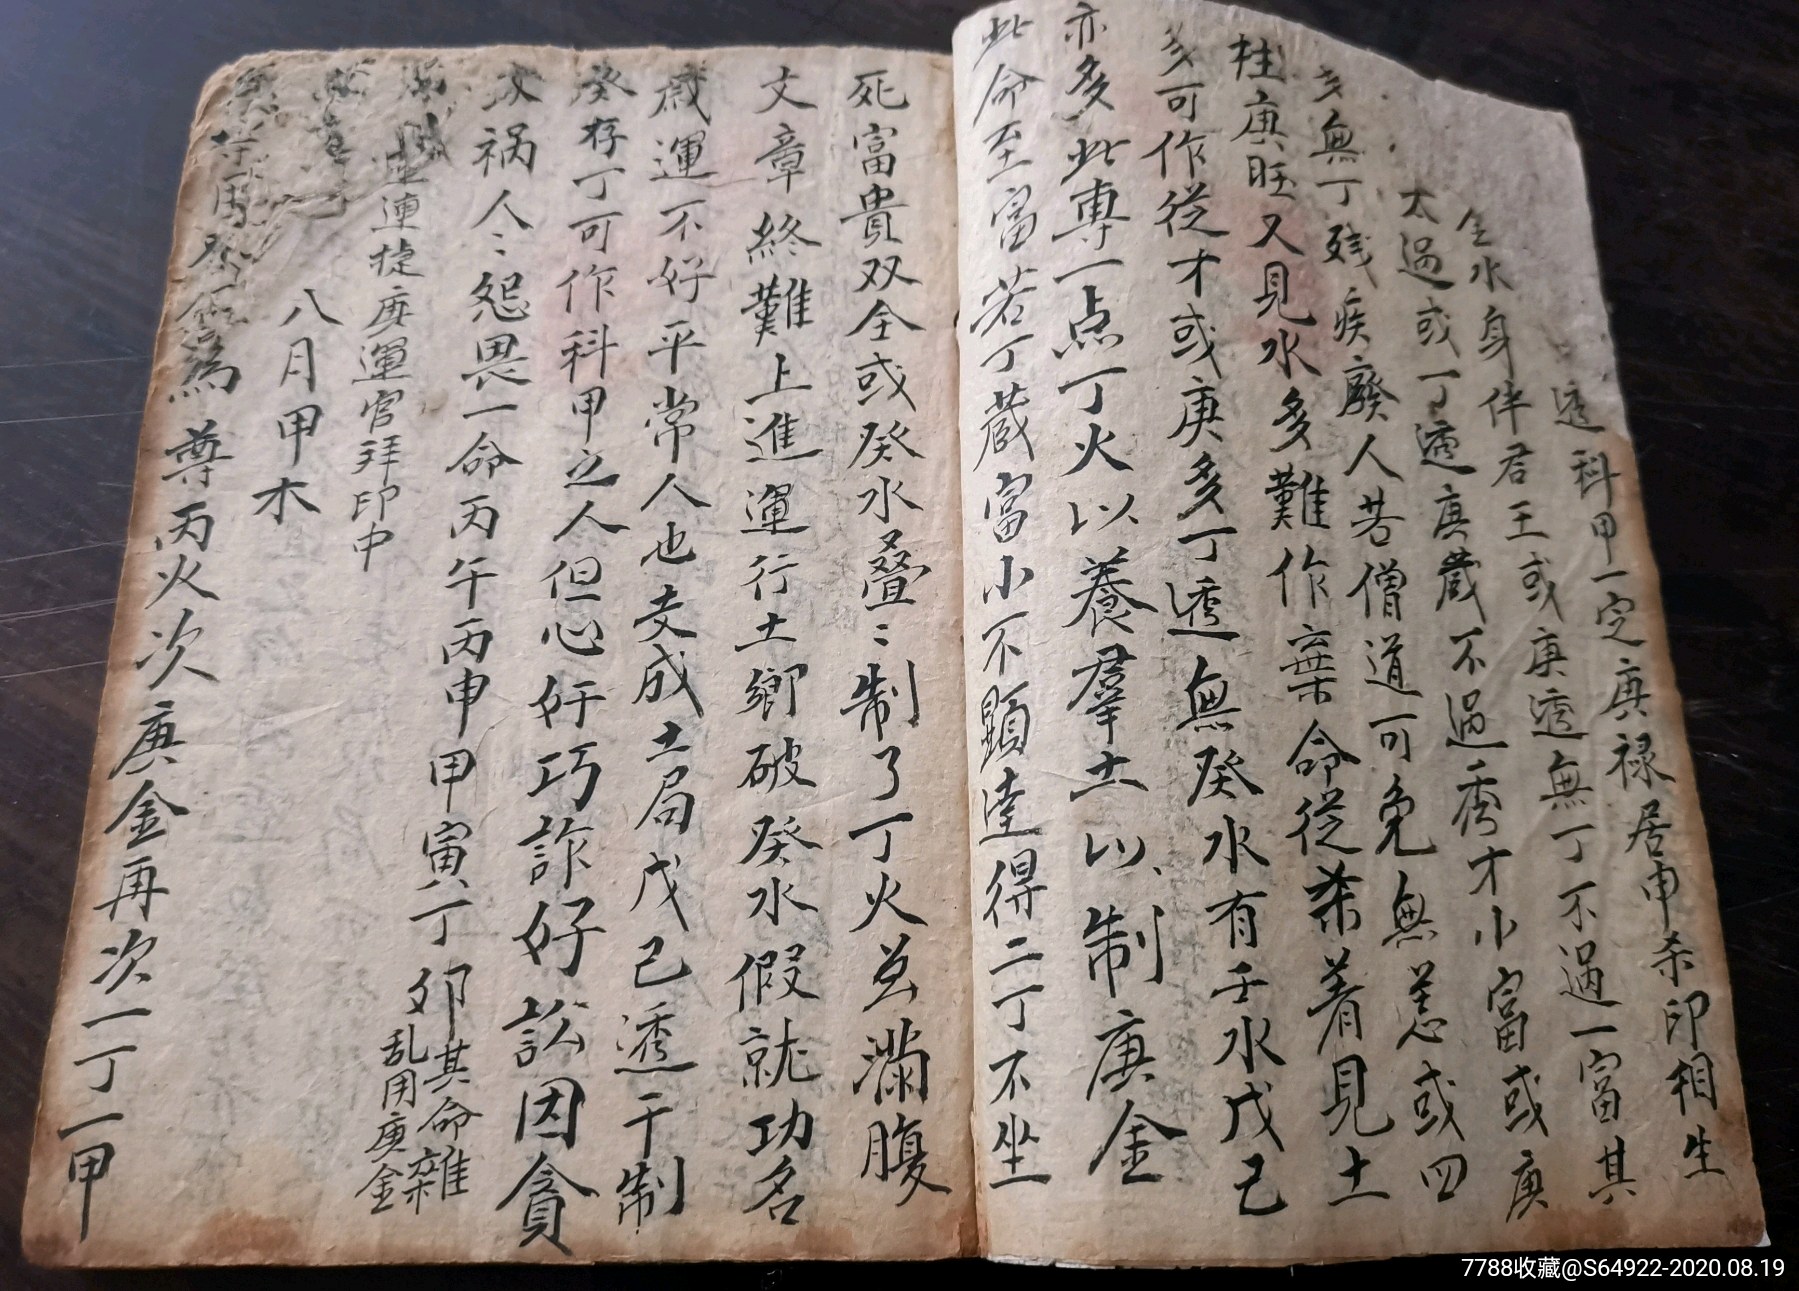 透科甲一定庚禄居申杀印相生
金水身伴君王或庚透無丁不過一富其
太過或丁透庚藏不過秀才小富或庚
多無丁残疾廢人若僧道可免無恙或四
柱庚旺又見水多難作棄命從杀着見土
多可作從才或庚多丁透無癸水有壬水戊己
亦多此專一点丁火以養羣土以制庚金
此命至富若丁藏富小不顕達得二丁不坐
死富貴双全或癸水叠〻制了丁火并滿腹
文章終難上進運行土鄉破癸水假就功名
歳運不好平常人也支成土局戊己透干制
癸存丁可作科甲之人但心奸巧詐好訟因貪
致禍人〻怨畏一命丙午丙申甲寅丁卯其命雜
乱用庚金
連捷庚運官拜印中
八月甲木
爲尊丙火次庚金再次一丁一甲
7788收藏@S64922-2020.08.19